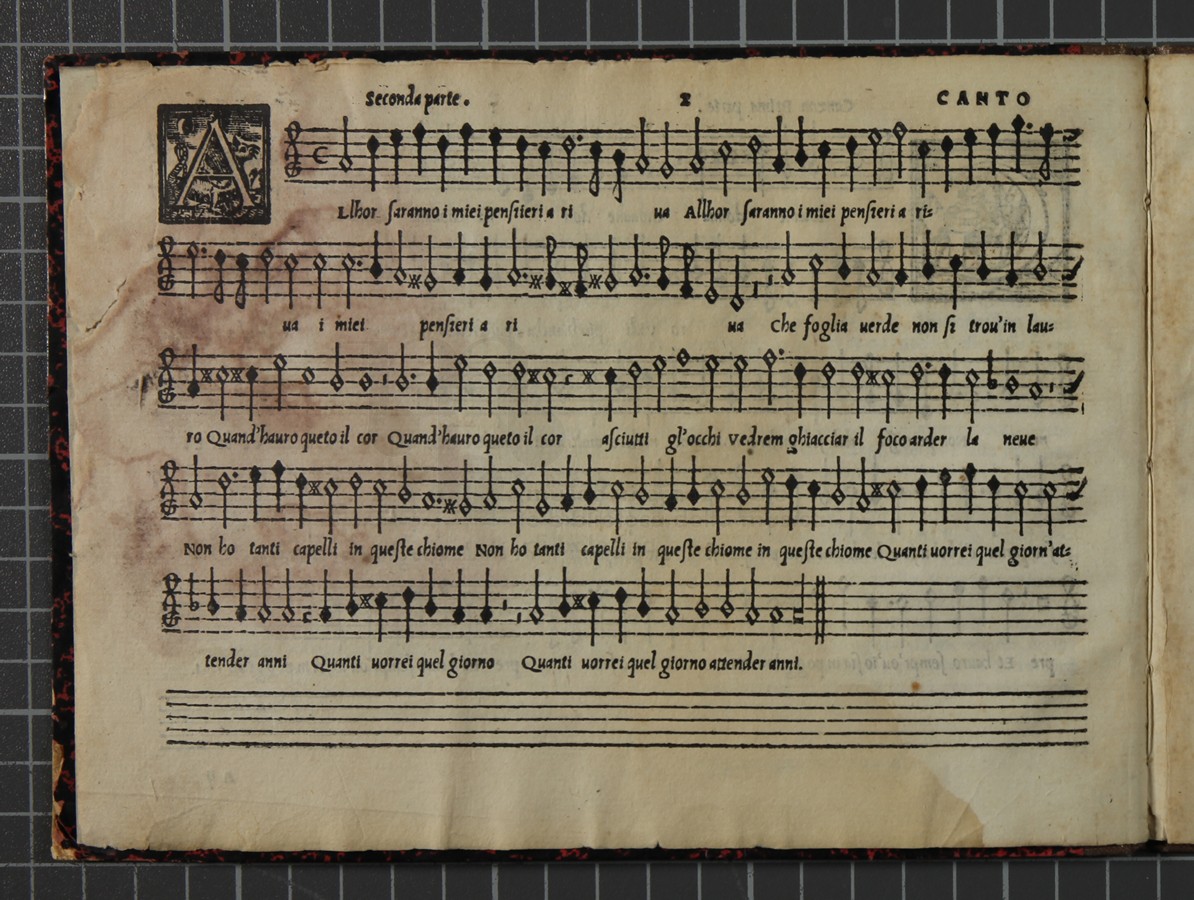 Seconda parte. 2 CANTO
ALlhor saranno i miei pensiieri a ri ua Allhor saranno i miei pensieri a ri=
ua i miei pensieri a ri ua Che foglia uerde non si trou'in lau=
ro Quand'hauro queto il cor Quand'hauro queto il cor asciutti gl'occhi vedrem ghiacciar il foco arder la neue
Non ho tanti capelli in queste chiome Non ho tanti capelli in queste chiome in queste chiome Quanti uorrei quel giorn'at=
tender anni Quanti uorrei quel giorno Quanti uorrei quel giorno attender anni.